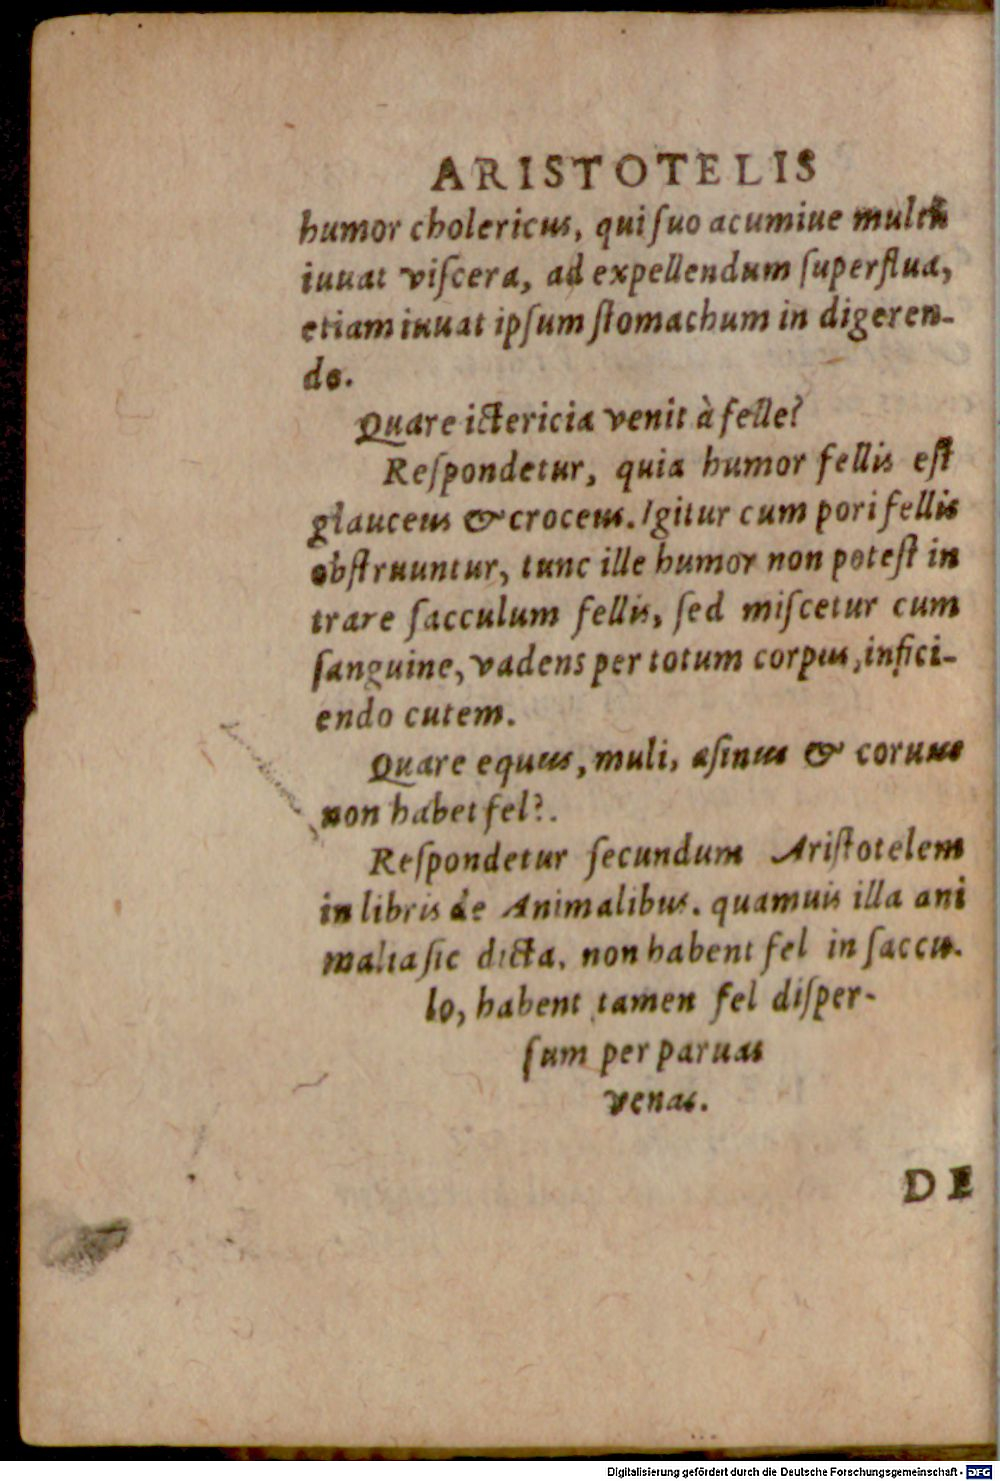 ARISTOTELIS
humor cholericus, qui ſuo acumiue multũ
iuuat viſcera, ad expellendum ſuperflua,
etiam iuuat ipſum ſtomachum in digeren-
do.
Quare ictericia venit à felle?
Reſpondetur, quia humor fellis eſt
glauceus & croceus. Igitur cum pori fellis
obſtruuntur, tunc ille humor non poteſt in
trare ſacculum fellis, ſed miſcetur cum
ſanguine, vadens per totum corpus, infici-
endo cutem.
Quare equus, muli, aſinus & coruus
non habet fel?.
Reſpondetur ſecundum Ariſtotelem
in libris de Animalibus. quamuis illa ani
malia ſic dicta, non habent fel in ſaccu-
lo, habent tamen fel diſper-
ſum per paruas
venas.
DE
Digitalisierung gefördert durch die Deutsche Forschungsgemeinschaft - DFG